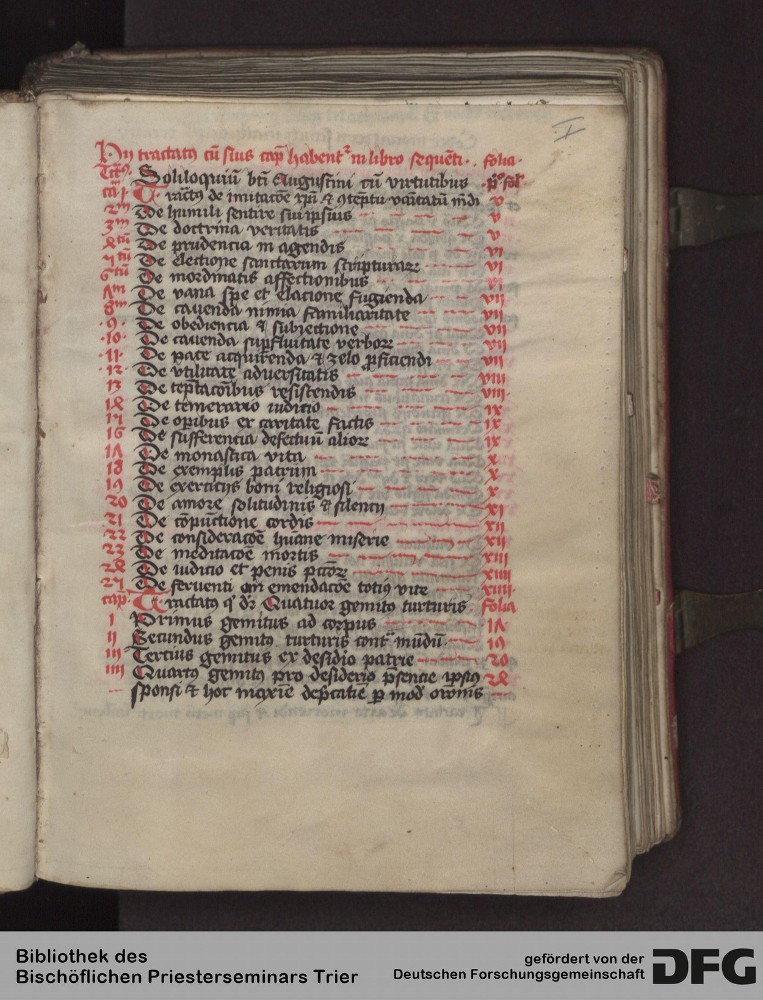 I
Hii tractatꝰ cū suis capͥ habentʳ in libro sequēti . folia .
Tctꝰ . Soliloquiū bti Augustini cū virtutibus pͦ fol
ca j Tractꝰ de imitacōe xpi & ꝯteptu vanitatū mdi v
2m De humili sentire sui ipsius v
3m De doctrina veritatis v
4tū De prudencia in agendis vi
5tū De electione sanctarum scripturaꝝ vi
6tū De inordinatis affectionibus vi
7m De vana spe et elacione fugienda vii
8m De cauenda nimia familiaritate vii
.9. De obediencia & subiectione vii
.10. De cauenda suꝑfluitate verboꝝ vii
.11. De pace acquirenda & zelo ꝓficiendi vii
.12. De vtilitate aduersitatis viii
13 De teptacōibus resistendis viii
14 De temerario iudicio ix
15 De opibus ex caritate factis ix
16 De sufferencia defectuū alioꝝ ix
17 De monastica vita x
18 De exemplis patrum x
19 De exercicijs boni religiosi x
20 De amore solitudinis & silencij xi
21 De cōpunctione cordis xii
22 De consideracōe huane miserie xii
23 De meditacōe mortis xiii
24 De iudicio et penis pctoꝝ xiiii
25 De feruenti emendacōe totiꝰ vite xiiii
cap. Tractatꝰ q dꝛ Quatuor gemitꝰ turturis . folia
I Primus gemitus ad corpus 17
II Secundus gemitꝰ turturis cont mūdū 19
III Tercius gemitus ex desidio patrie 20
IIII Quartꝰ gemitꝰ pro desiderio psencie ipsiꝰ 24
sponsi & hoc maxīe depcatiē ꝑ mod oronis
Bibliothek des
Bischöflichen Priesterseminars Trier
gefördert von der
Deutschen Forschungsgemeinschaft
DFG